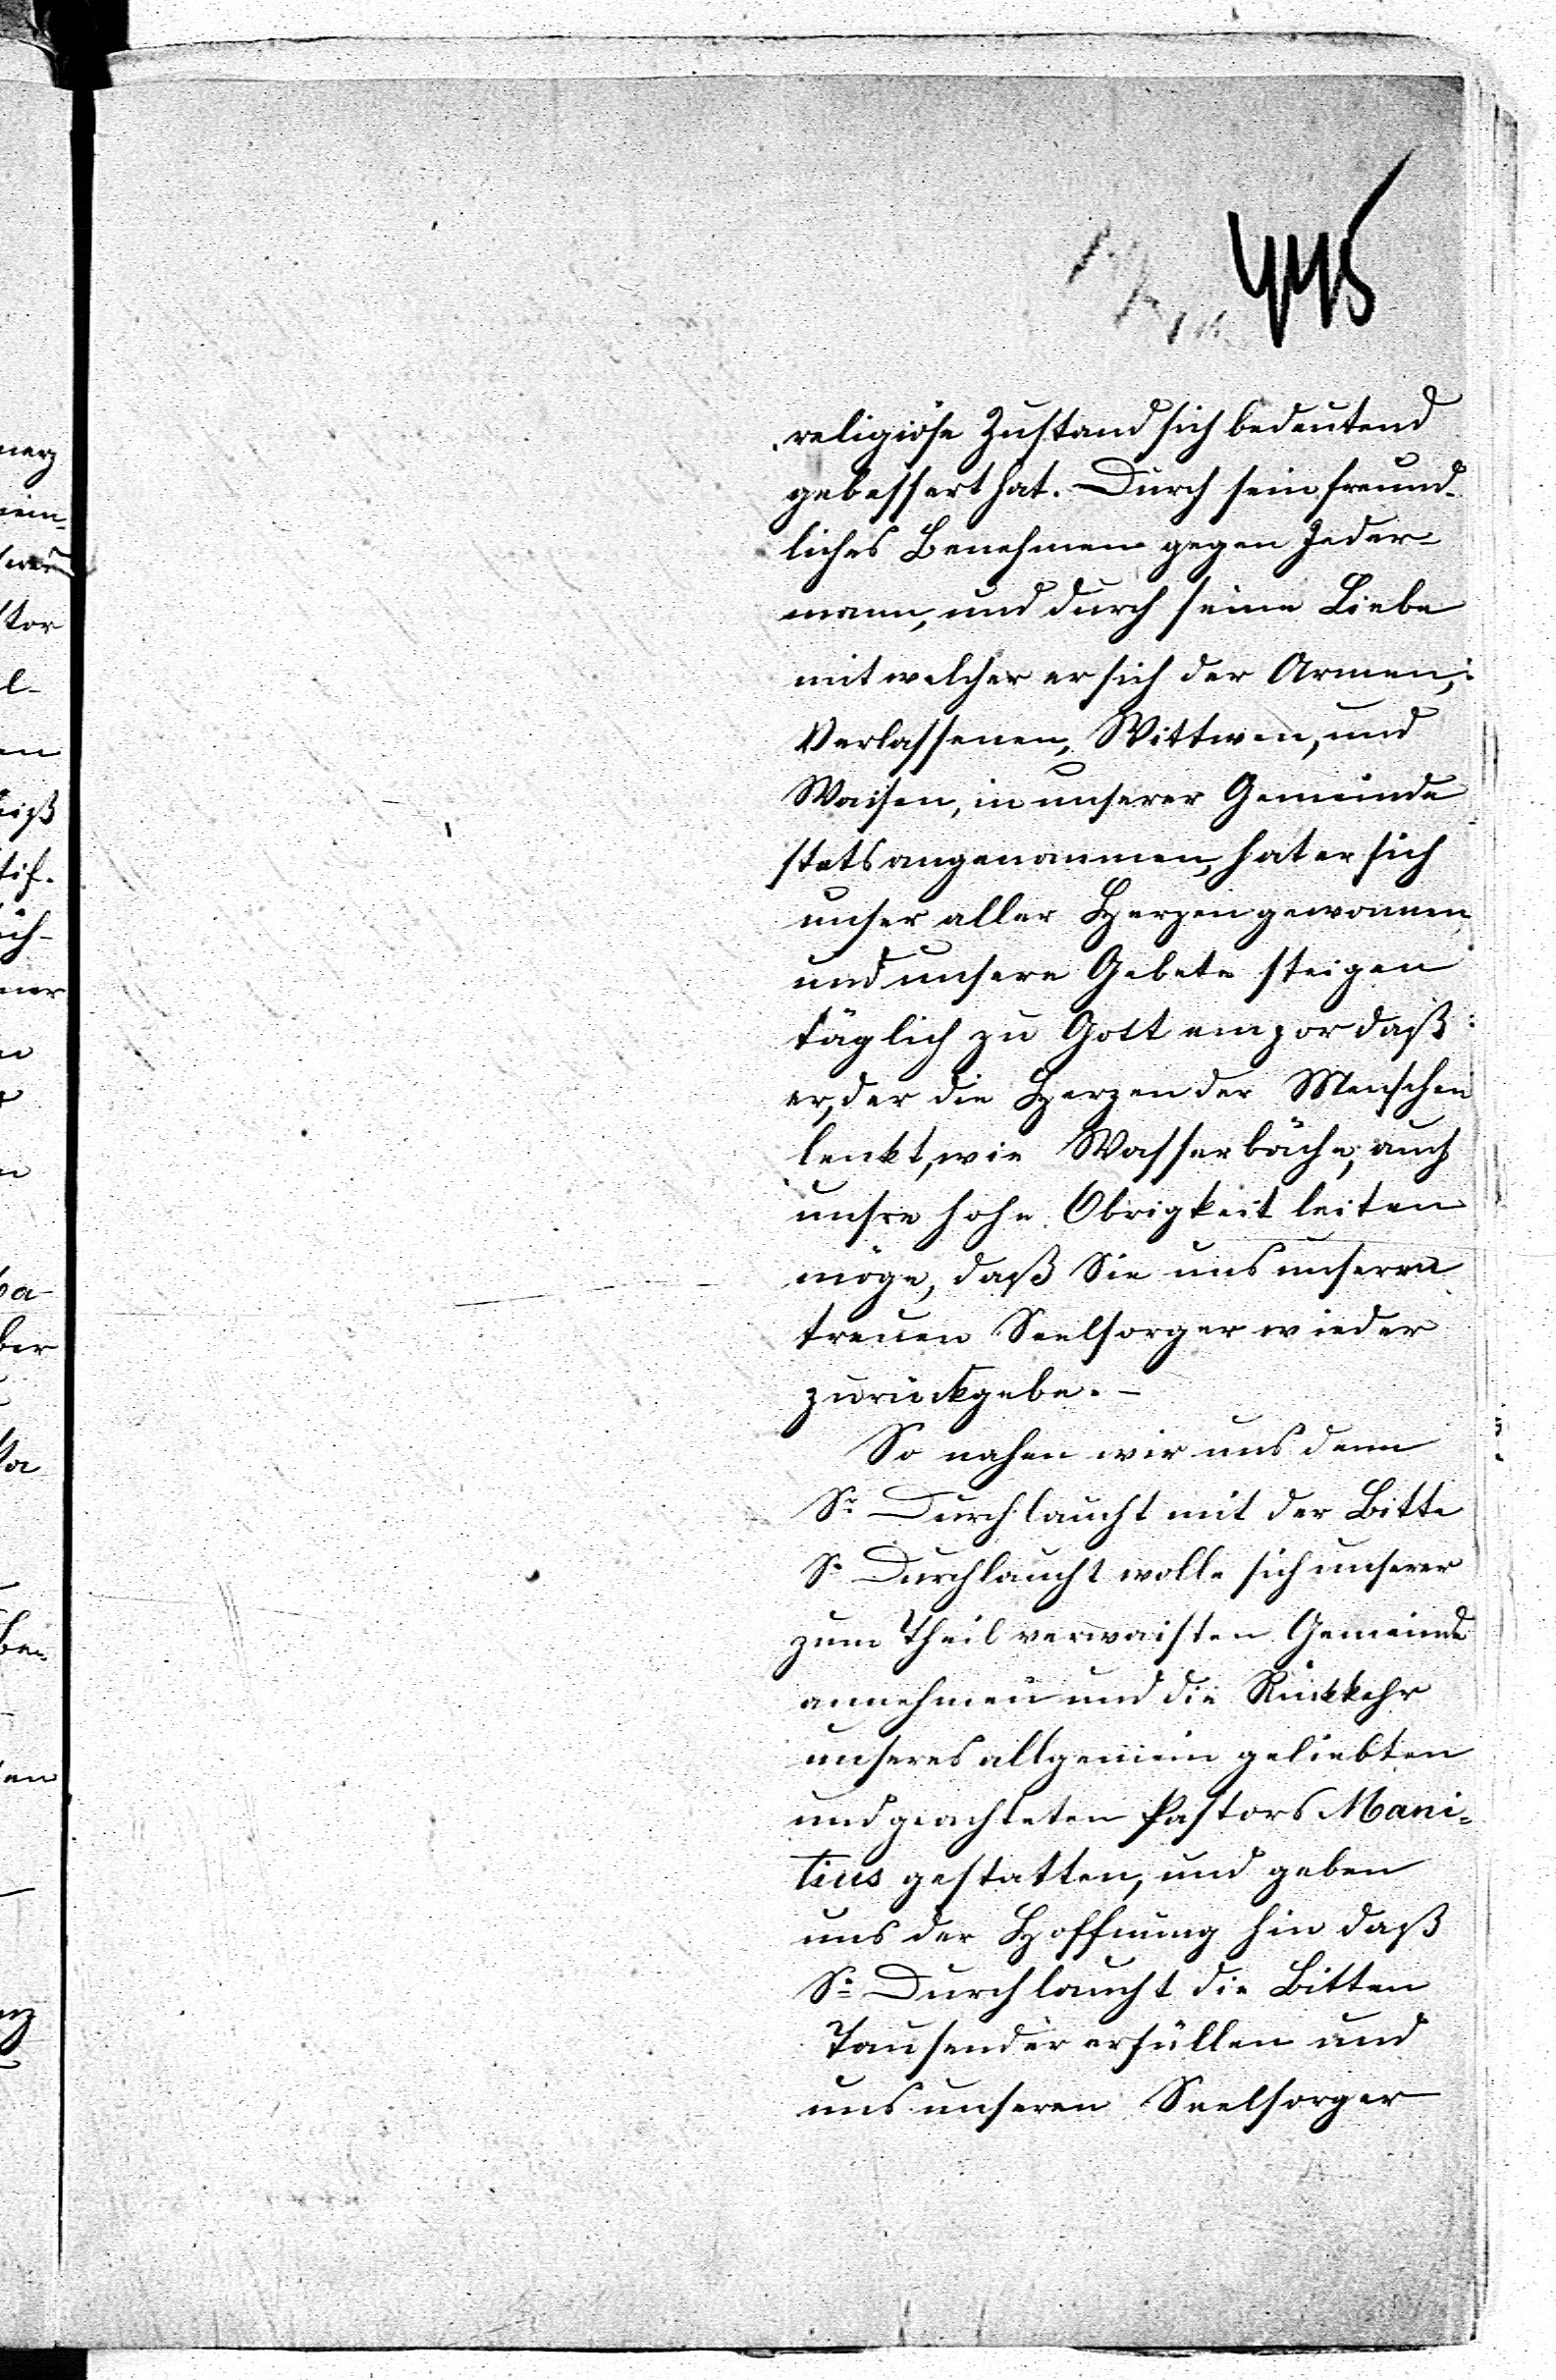 445
religiöse Zustand sich bedeutend
gebessert hat. Durch sein freund-
liches Benehmen gegen Jeder-
mann, und durch seine Liebe
mit welcher er sich der Armen,
Verlassenen, Wittwen, und
Waisen, in unserer Gemeinde
stets angenommen, hat er sich
unser aller Herzen gewonnen,
und unsere Gebete steigen
täglich zu Gott empor daß
er, der die Herzen der Menschen
lenkt, wie Wasserbäche, auch
unsre hohe Obrigkeit leiten
möge, daß Sie uns unseren
treuen Seelsorger wieder
zurückgebe. –
So nahen wir uns denn
Sr Durchlaucht mit der Bitte
Se Durchlaucht wolle sich unserer
zum Theil verwaisten Gemeinde
annehmen und die Rückkehr
unseres allgemein geliebten
und geachteten Pastors Mani-
tius gestatten, und geben
uns der Hoffnung hin daß
Se Durchlaucht die Bitten
Tausender erfüllen und
uns unseren Seelsorger